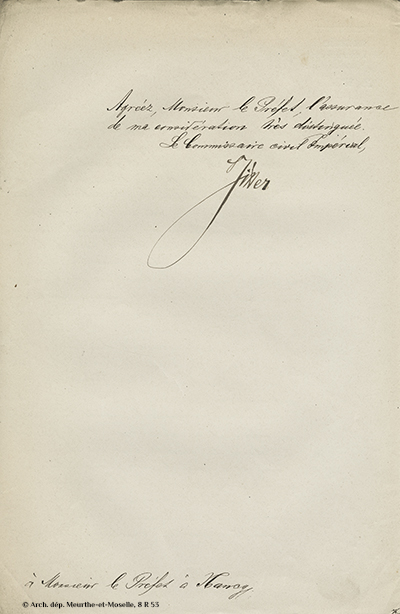 Agréez, Monsieur le Préfet, l'assurance
de ma considération très distinguée.
Le Commissaire civil Impérial,
à Monsieur le Préfet à Nancy
© Arch. dép. Meurthe-et-Moselle, 8 R 53